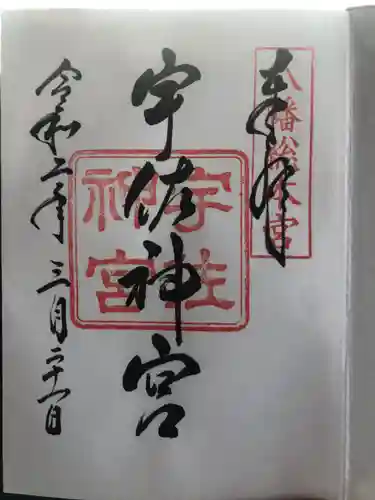 奉拝
八幡総本宮
宇佐神宮
宇佐
神宮
令和二年三月二十一日